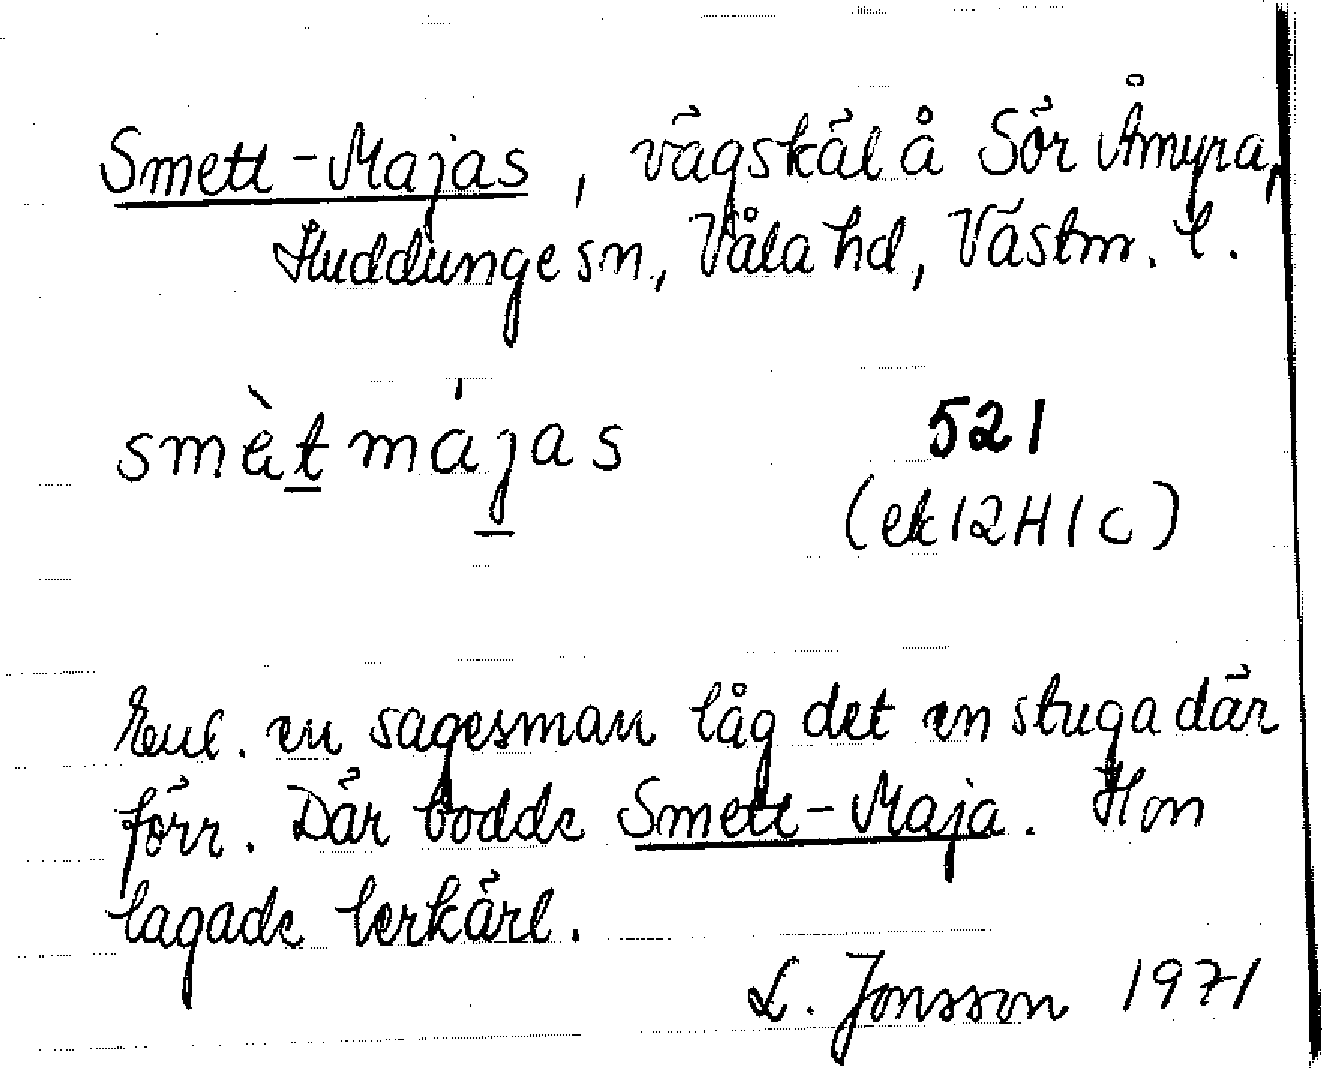 Smett-Majas, vägskäl å Sör Åmyra,
Huddunge sn., Våla hd, Västm. l.
smètmájas
521
(ek 12H1c)
Enl. en sagesman låg det en stuga där
förr. Där bodde Smett-Maja. Hon
lagade lerkärl.
L. Jonsson 1971